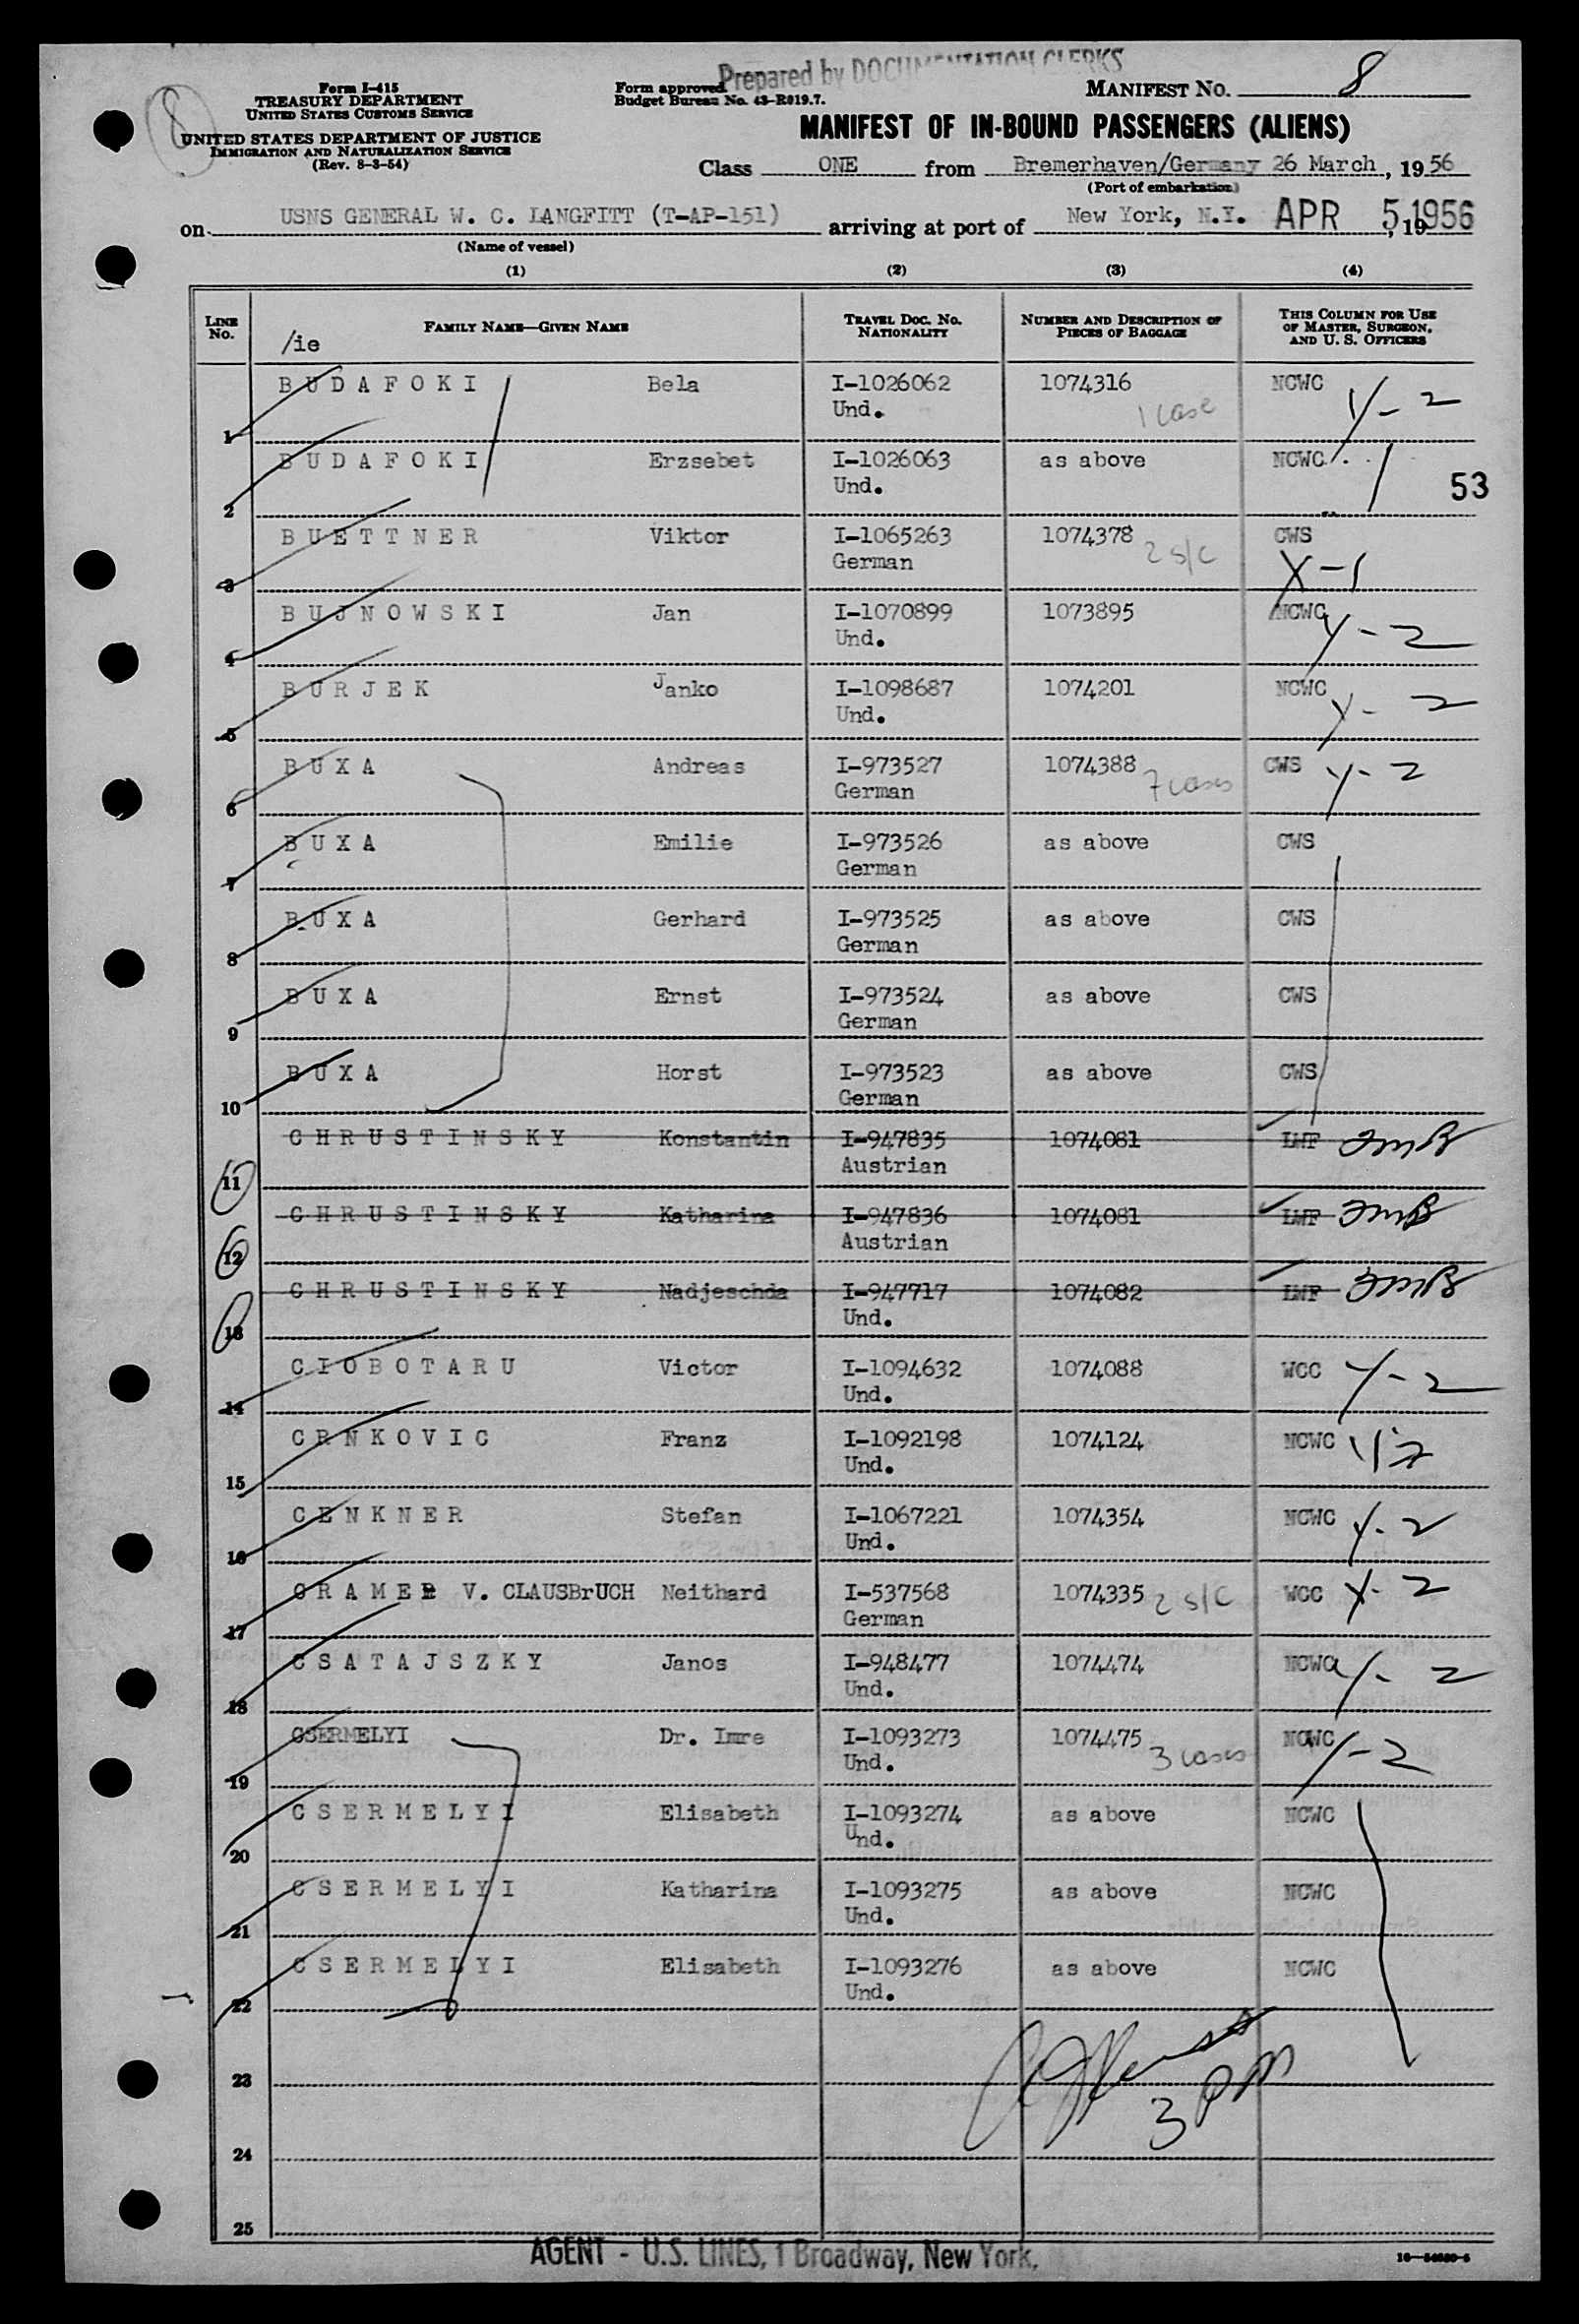 Prepared by DOCUMENTATION CLERKS
8
Form I-415
TREASURY DEPARTMENT
UNITED STATES CUSTOMS SERVICE
UNITED STATES DEPARTMENT OF JUSTICE
IMMIGRATION AND NATURALIZATION SERVICE
(Rev. 8-3-54)
Form approved
Budget Bureau No. 43-R019.7.
MANIFEST NO. 8
MANIFEST OF IN-BOUND PASSENGERS (ALIENS)
Class ONE from Bremerhaven/Germany 26 March, 1956
(Port of embarkation)
on USNS GENERAL W. C. LANGFITT (T-AP-151) arriving at port of New York, N.Y. APR 5, 19 1956
(Name of vessel)
(1) (2) (3) (4)
LINE NO. FAMILY NAME—GIVEN NAME TRAVEL DOC. NO. NATIONALITY NUMBER AND DESCRIPTION OF PIECES OF BAGGAGE THIS COLUMN FOR USE OF MASTER, SURGEON, AND U. S. OFFICERS
/ie
1 BUDAFOKI Bela I-1026062 1074316 NCWC Y-2
Und. 1 case
2 BUDAFOKI Erzsebet I-1026063 as above NCWC
Und. 53
3 BUETTNER Viktor I-1065263 1074378 2 s/c CWS
German X-1
4 BUJNOWSKI Jan I-1070899 1073895 NCWC Y-2
Und.
5 BURJEK Janko I-1098687 1074201 NCWC Y-2
Und.
6 BUXA Andreas I-973527 1074388 7 cases CWS Y-2
German
7 BUXA Emilie I-973526 as above CWS
German
8 BUXA Gerhard I-973525 as above CWS
German
9 BUXA Ernst I-973524 as above CWS
German
10 BUXA Horst I-973523 as above CWS
German
11 CHRUSTINSKY Konstantin I-947835 1074081 LWF
Austrian
12 CHRUSTINSKY Katharina I-947836 1074081 LWF
Austrian
13 CHRUSTINSKY Nadjeschda I-947717 1074082 LWF
Und.
14 CIOBOTARU Victor I-1094632 1074088 WCC Y-2
Und.
15 CRNKOVIC Franz I-1092198 1074124 NCWC Y-2
Und.
16 CENKNER Stefan I-1067221 1074354 NCWC Y-2
Und.
17 CRAMER V. CLAUSBrUCH Neithard I-537568 1074335 2 s/c WCC X-2
German
18 CSATAJSZKY Janos I-948477 1074474 NCWC Y-2
Und.
19 CSERMELYI Dr. Imre I-1093273 1074475 3 cases NCWC Y-2
Und.
20 CSERMELYI Elisabeth I-1093274 as above NCWC
Und.
21 CSERMELYI Katharina I-1093275 as above NCWC
Und.
22 CSERMELYI Elisabeth I-1093276 as above NCWC
Und.
23
3 PM
24
25
AGENT - U.S. LINES, 1 Broadway, New York.